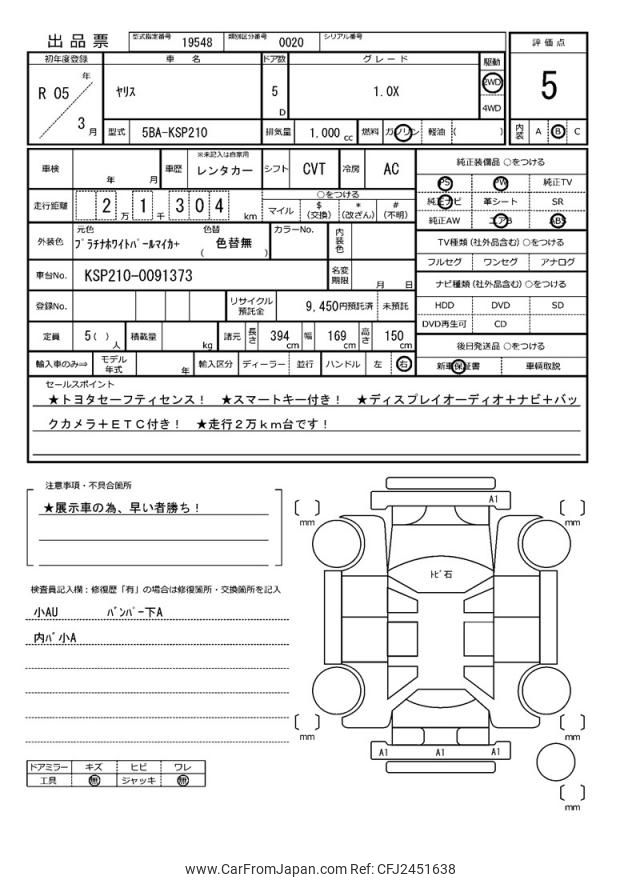 出品票 型式指定番号 19548 類別区分番号 0020 シリアル番号
評価点
5
初年度登録 車名 ドア数 グレード 駆動
R 05 年 3 月 ヤリス 5 D 1.0X 2WD
4WD
型式 5BA-KSP210 排気量 1.000 cc 燃料 ガソリン 軽油 ( )
内装 A B C
車検 年 月 車歴 ※未記入は自家用 レンタカー シフト CVT 冷房 AC
走行距離 2 万 1 千 3 0 4 km ○をつける
マイル $ (交換) * (改ざん) # (不明)
外装色 元色 プラチナホワイトパールマイカ+ 色替 ( 色替無 ) カラーNo. 内装色
車台No. KSP210-0091373 名変期限 月 日
登録No. リサイクル預託金 9,450円預託済 未預託
定員 5( )人 積載量 kg 諸元 長さ 394 cm 幅 169 cm 高さ 150 cm
輸入車のみ⇒ モデル年式 年 輸入区分 ディーラー 並行 ハンドル 左 右
純正装備品 ○をつける
PS PW 純正TV
純正ナビ 革シート SR
純正AW エアB ABS
TV種類(社外品含む)○をつける
フルセグ ワンセグ アナログ
ナビ種類(社外品含む)○をつける
HDD DVD SD
DVD再生可 CD
後日発送品 ○をつける
新車保証書 車輌取説
セールスポイント
★トヨタセーフティセンス! ★スマートキー付き! ★ディスプレイオーディオ+ナビ+バッ
クカメラ+ETC付き! ★走行2万km台です!
注意事項・不具合箇所
★展示車の為、早い者勝ち!
検査員記入欄:修復歴「有」の場合は修復箇所・交換箇所を記入
小AU バンパー下A
内パ小A
ドアミラー キズ ヒビ ワレ
工具 無 ジャッキ 無
A1
mm
mm
トビ石
mm
mm
A1 A1 A1
mm
www.CarFromJapan.com Ref: CFJ2451638